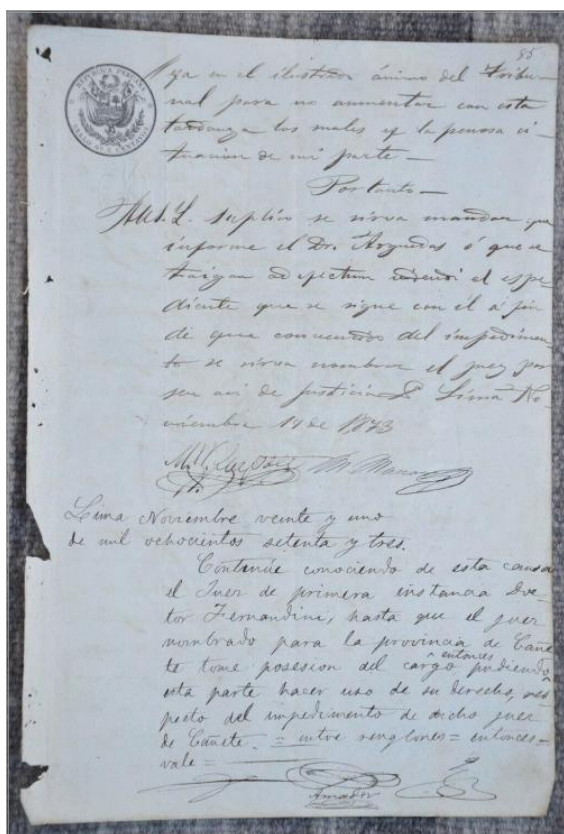 95
REPUBLICA PERUANA
ya en el ilustrado ánimo del tribu-
nal para no aumentar con esta
tardanza los males y la penosa si-
tuacion de mi parte —
Por tanto —
A U.S.I. suplico se sirva mandar que
informe el Dr. Arguedas ó que se
traigan ad efectum videndi el espe
diente que se sigue con él a fin
de que convencidos del impedimen-
to se sirva nombrar el juez por
ser asi de justicia Lima No-
viembre 19 de 1873
Lima Noviembre veinte y uno
de mil ochocientos setenta y tres.
Continúe conociendo de esta causa
el Juez de primera instancia Doc
tor Fernandini, hasta que el juez
nombrado para la provincia de Cañe
entonces
te tome posesion del cargo pudiendo
esta parte hacer uso de su derecho, res
pecto del impedimento de dicho juez
de Cañete. = entre renglones = entonces =
vale =
Amador